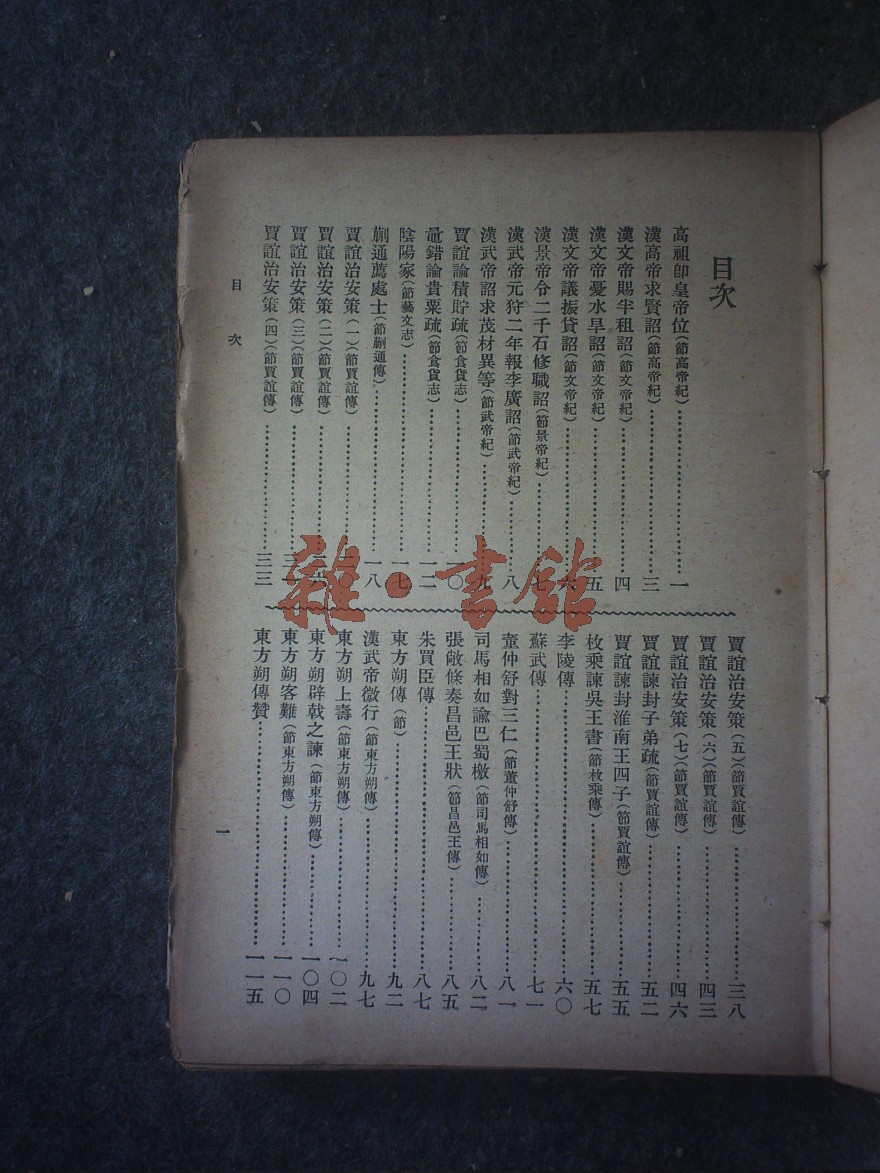 目次
高祖卽皇帝位（節高帝紀）⋯⋯一
漢高帝求賢詔（節高帝紀）⋯⋯三
漢文帝賜半租詔（節文帝紀）⋯⋯四
漢文帝憂水旱詔（節文帝紀）⋯⋯五
漢文帝議振貸詔（節文帝紀）⋯⋯六
漢景帝令二千石修職詔（節景帝紀）⋯⋯七
漢武帝元狩二年報李廣詔（節武帝紀）⋯⋯八
漢武帝詔求茂材異等（節武帝紀）⋯⋯九
賈誼論積貯疏（節食貨志）⋯⋯一〇
鼂錯論貴粟疏（節食貨志）⋯⋯一二
陰陽家（節藝文志）⋯⋯一七
蒯通薦處士（節蒯通傳）⋯⋯一八
賈誼治安策（一）（節賈誼傳）⋯⋯
賈誼治安策（二）（節賈誼傳）⋯⋯
賈誼治安策（三）（節賈誼傳）⋯⋯
賈誼治安策（四）（節賈誼傳）⋯⋯三三
賈誼治安策（五）（節賈誼傳）⋯⋯三八
賈誼治安策（六）（節賈誼傳）⋯⋯四三
賈誼治安策（七）（節賈誼傳）⋯⋯四六
賈誼諫封子弟疏（節賈誼傳）⋯⋯五二
賈誼諫封淮南王四子（節賈誼傳）⋯⋯五五
枚乘諫吳王書（節枚乘傳）⋯⋯五七
李陵傳⋯⋯六〇
蘇武傳⋯⋯七一
董仲舒對三仁（節董仲舒傳）⋯⋯八一
司馬相如諭巴蜀檄（節司馬相如傳）⋯⋯八二
張敞條奏昌邑王狀（節昌邑王傳）⋯⋯八五
朱買臣傳⋯⋯八七
東方朔傳（節）⋯⋯九二
漢武帝微行（節東方朔傳）⋯⋯九七
東方朔上壽（節東方朔傳）⋯⋯一〇二
東方朔辟戟之諫（節東方朔傳）⋯⋯一〇四
東方朔客難（節東方朔傳）⋯⋯一一〇
東方朔傳贊⋯⋯一一五
目次
一
雜·書館